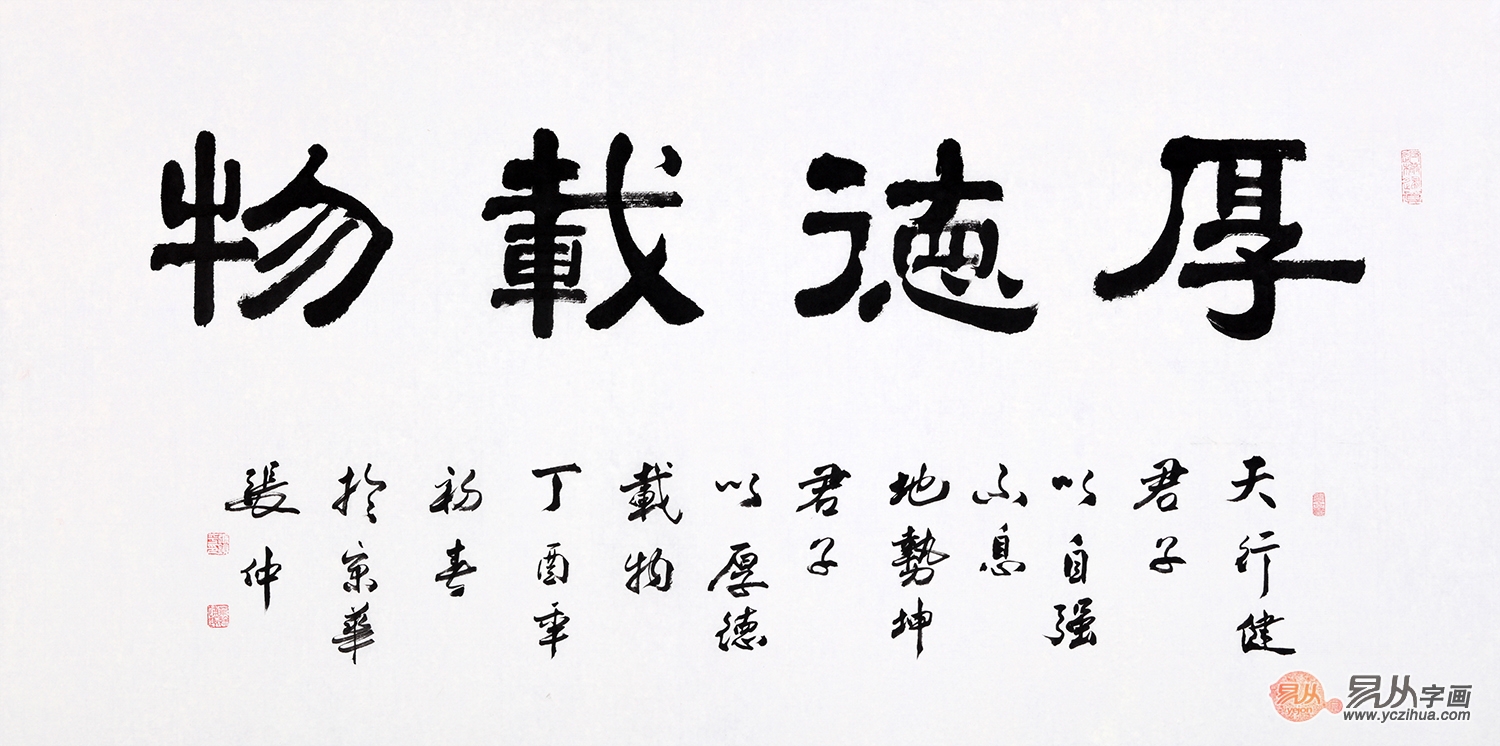 厚德載物
天行健
君子
以自强
不息
地勢坤
君子
以厚德
載物
丁酉年
初春
於京華
張仲
易从
易从字画
www.yczihua.com